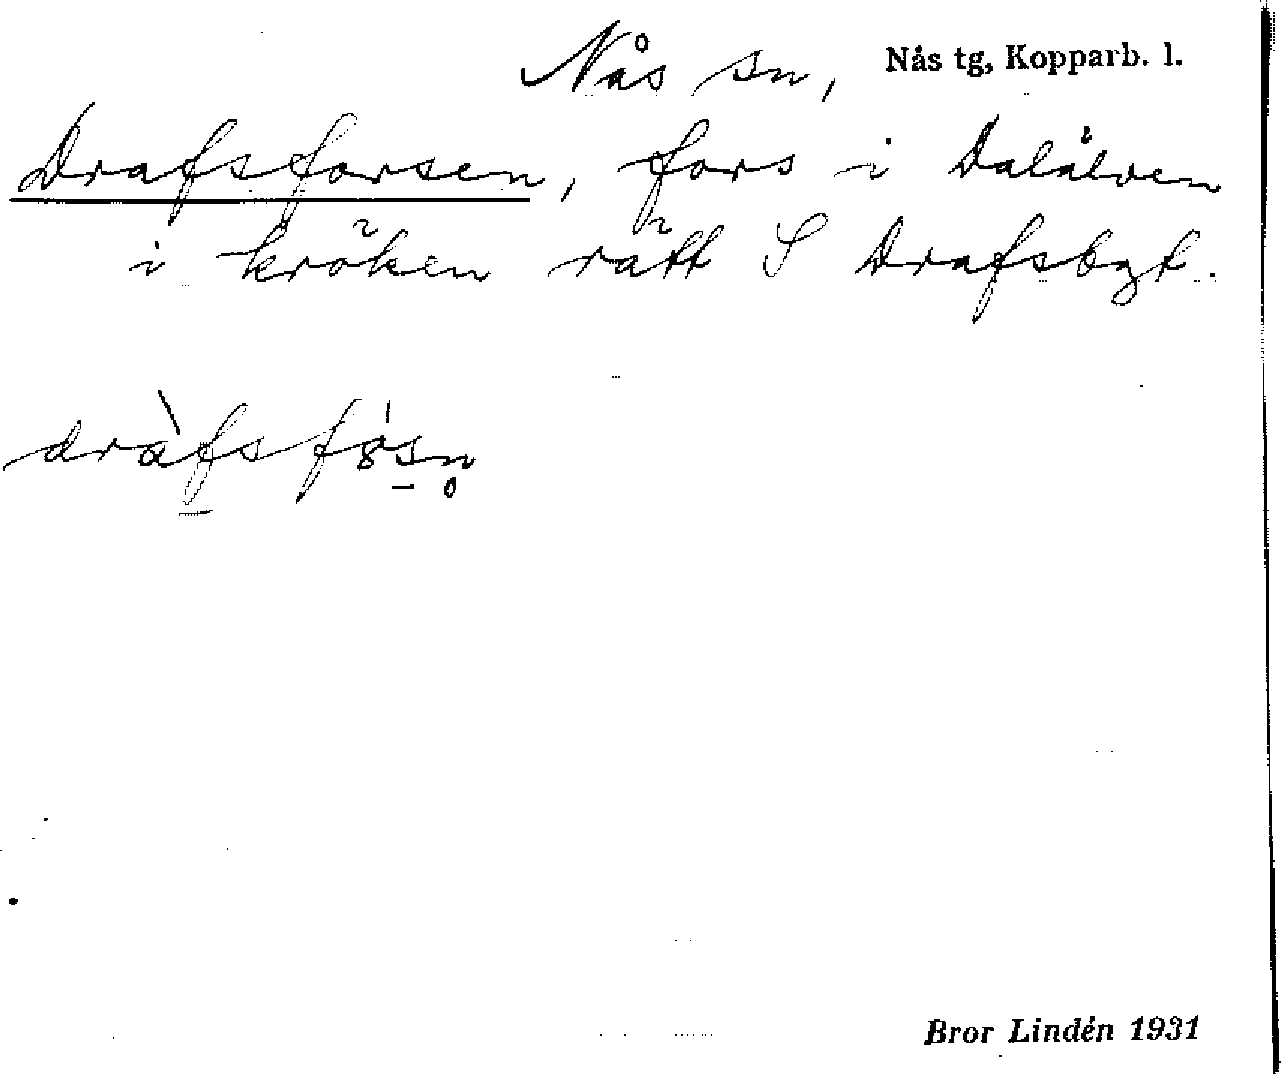 Nås sn, Nås tg, Kopparb. l.
Drafsforsen, fors i Dalälven
i kröken rätt S Drafsbgt.
Bror Lindén 1931